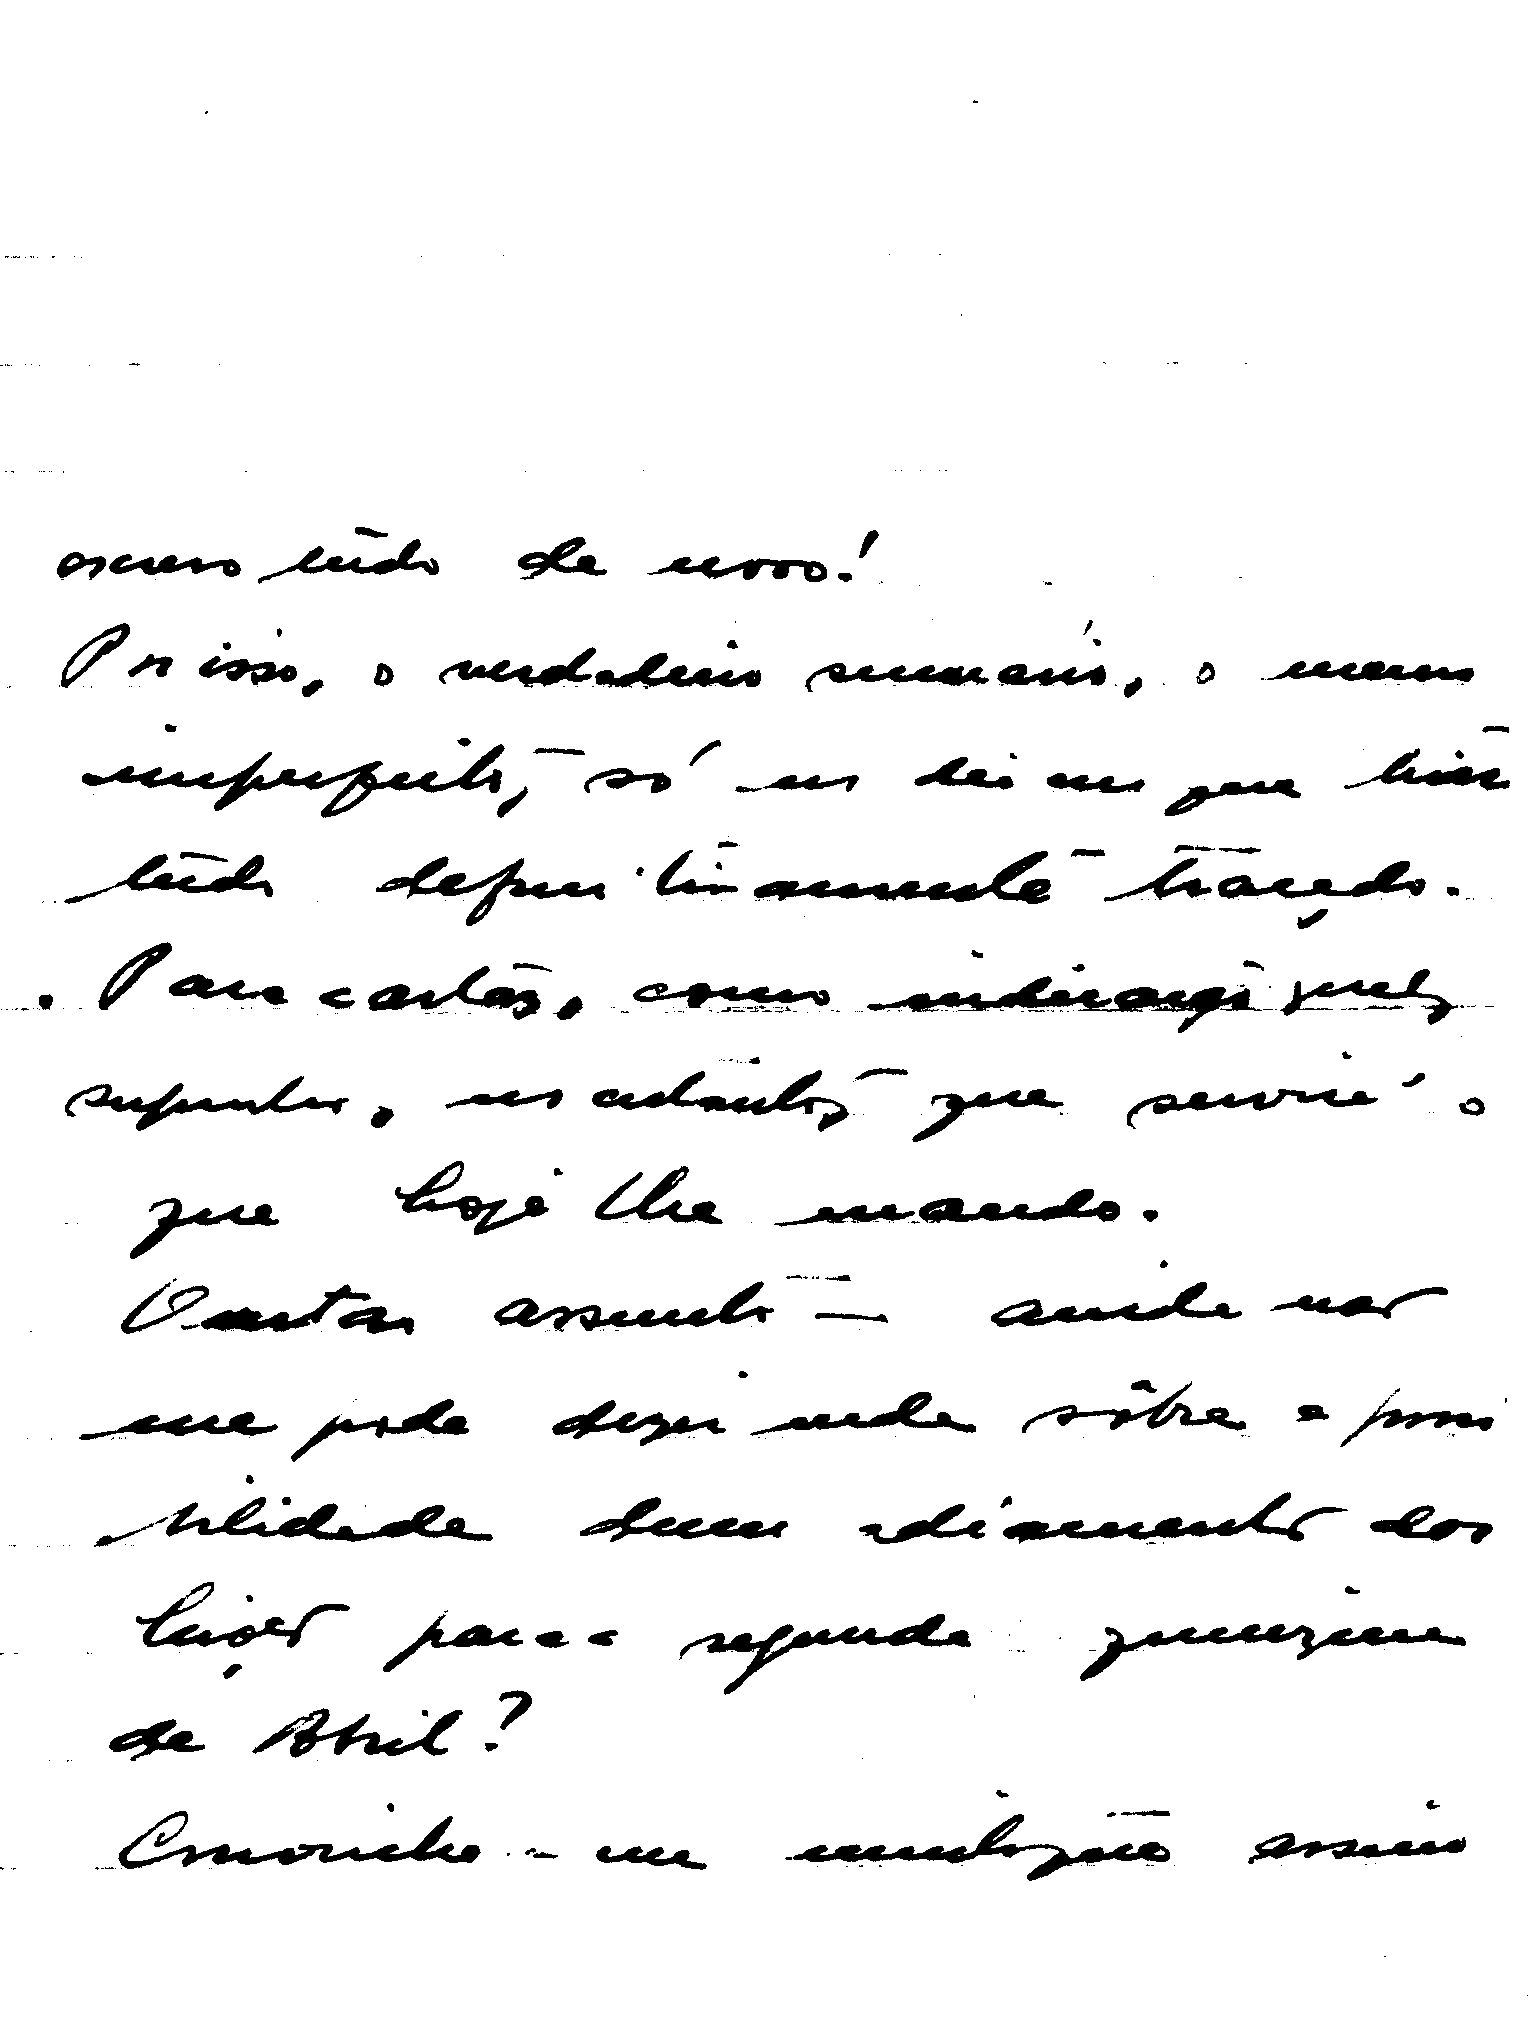 escrevo tudo de novo!
Por isso, o verdadeiro sumário, o menos
imperfeito, só no dia em que tiver
tudo definitivamente traçado.
. Para cartaz, como indicação simples
suponho, no entanto, que servirá o
que hoje lhe mando.
Outro assunto — ainda não
me pode dizer nada sôbre a possi
bilidade dum adiamento das
lições para a segunda quinzena
de Abril?
Convinha-me muitíssimo assim